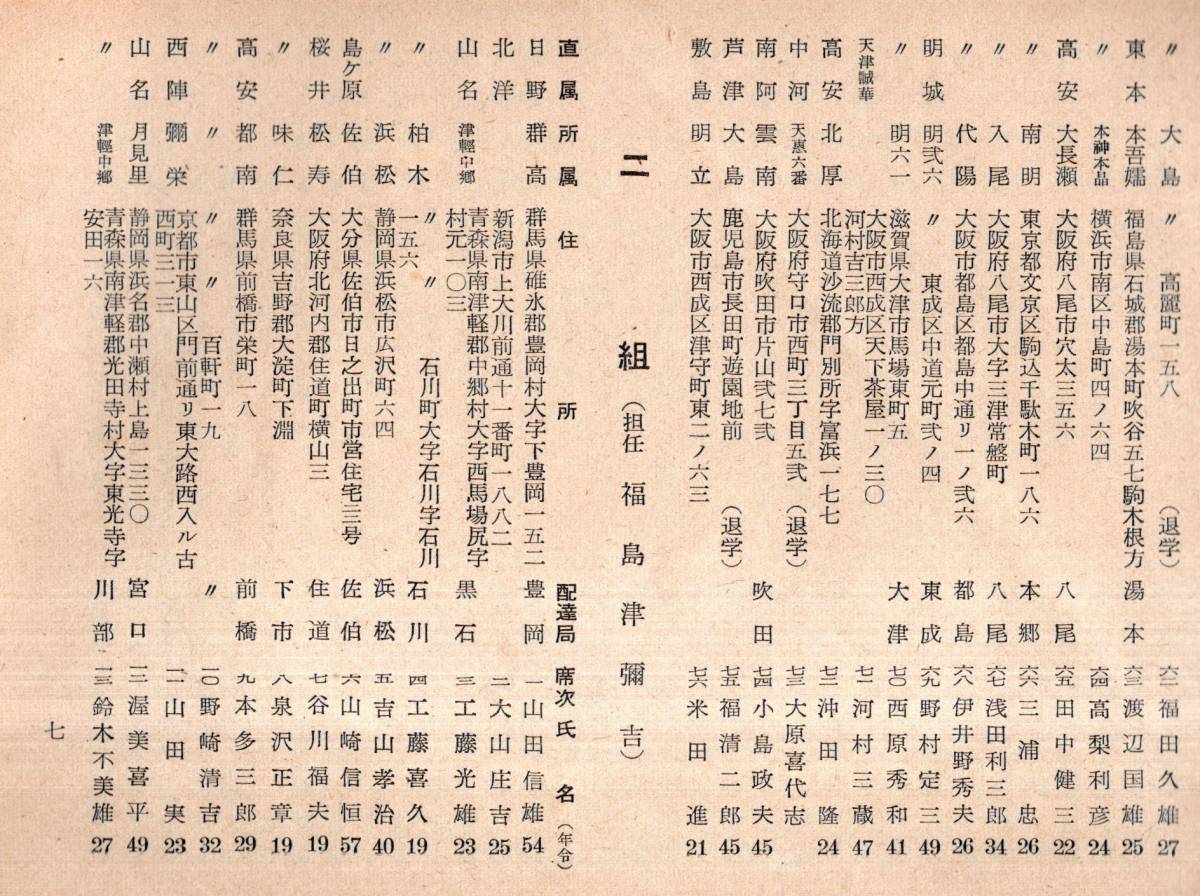 〃 大島 〃 高麗町一五八 (退学) 六二 福田久雄 27
東本 本吾嬬 福島県石城郡湯本町吹谷五七駒木根方 湯本 六三 渡辺国雄 25
〃 本神本品 横浜市南区中島町四ノ六四 六四 高梨利彦 24
高安 大長瀬 大阪府八尾市穴太三五六 八尾 六五 田中健三 22
〃 南明 東京都文京区駒込千駄木町一八六 本郷 六六 三浦忠 26
〃 入尾 大阪府八尾市大字三津常盤町 八尾 六七 浅田利三郎 34
〃 代陽 大阪市都島区都島中通リ一ノ弐六 都島 六八 伊井野秀夫 26
明城 明弐六 〃 東成区中道元町弐ノ四 東成 六九 野村定三 49
〃 明六一 滋賀県大津市馬場東町五 大津 七〇 西原秀和 41
天津誠華 大阪市西成区天下茶屋一ノ三〇
河村吉三郎方 七一 河村三蔵 47
高安 北厚 北海道沙流郡門別所字富浜一七七 七二 沖田隆 24
中河 天惠六番 大阪府守口市西町三丁目五弐 (退学) 七三 大原喜代志
南阿 雲南 大阪府吹田市片山弐七弐 吹田 七四 小島政夫 45
芦津 大島 鹿児島市長田町遊園地前 (退学) 七五 福清二郎 45
敷島 明立 大阪市西成区津守町東二ノ六三 七六 米田進 21
二組 (担任 福島津彌吉)
直属 所属 住所 配達局 席次 氏名 (年令)
日野 群高 群馬県碓氷郡豊岡村大字下豊岡一五二 豊岡 一 山田信雄 54
北洋 新潟市上大川前通十一番町一八八二 二 大山庄吉 25
山名 津輕中郷 青森県南津軽郡中郷村大字西馬場尻字
村元一〇三 黒石 三 工藤光雄 23
〃 柏木 〃 〃 石川町大字石川字石川
一五六 石川 四 工藤喜久 19
〃 浜松 静岡県浜松市広沢町六四 浜松 五 吉山孝治 40
島ケ原 佐伯 大分県佐伯市日之出町市営住宅三号 佐伯 六 山崎信恒 57
桜井 松寿 大阪府北河内郡住道町横山三 住道 七 谷川福夫 19
〃 味仁 奈良県吉野郡大淀町下淵 下市 八 泉沢正章 19
高安 都南 群馬県前橋市栄町一八 前橋 九 本多三郎 29
〃 〃 〃 百軒町一九 〃 一〇 野崎清吉 32
西陣 彌栄 京都市東山区門前通リ東大路西入ル古
西町三一三 一一 山田実 23
山名 月見里 静岡県浜名郡中瀬村上島一三三〇 宮口 一二 渥美喜平 49
〃 津輕中郷 青森県南津軽郡光田寺村大字東光寺字
安田一六 川部 一三 鈴木不美雄 27
七